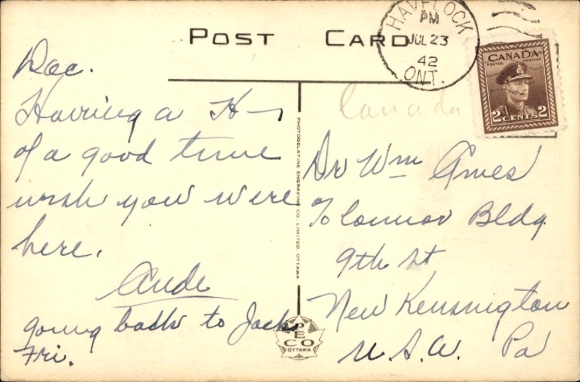 POST CARD
HAVELOCK
PM
JUL 23
42
ONT.
CANADA
POSTES POSTAGE
2 CENTS 2
Canada
Doc.
Having a H—
of a good time
wish you were
here.
Ande
going back to Jacks
Fri.
PHOTOGELATINE ENGRAVING CO. LIMITED, OTTAWA
PECO
OTTAWA
Dr Wm Ames
% Connor Bldg
9th St
New Kensington
U.S.A. Pa